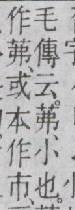 毛傳云。茀小也。
作茀、或本作市、